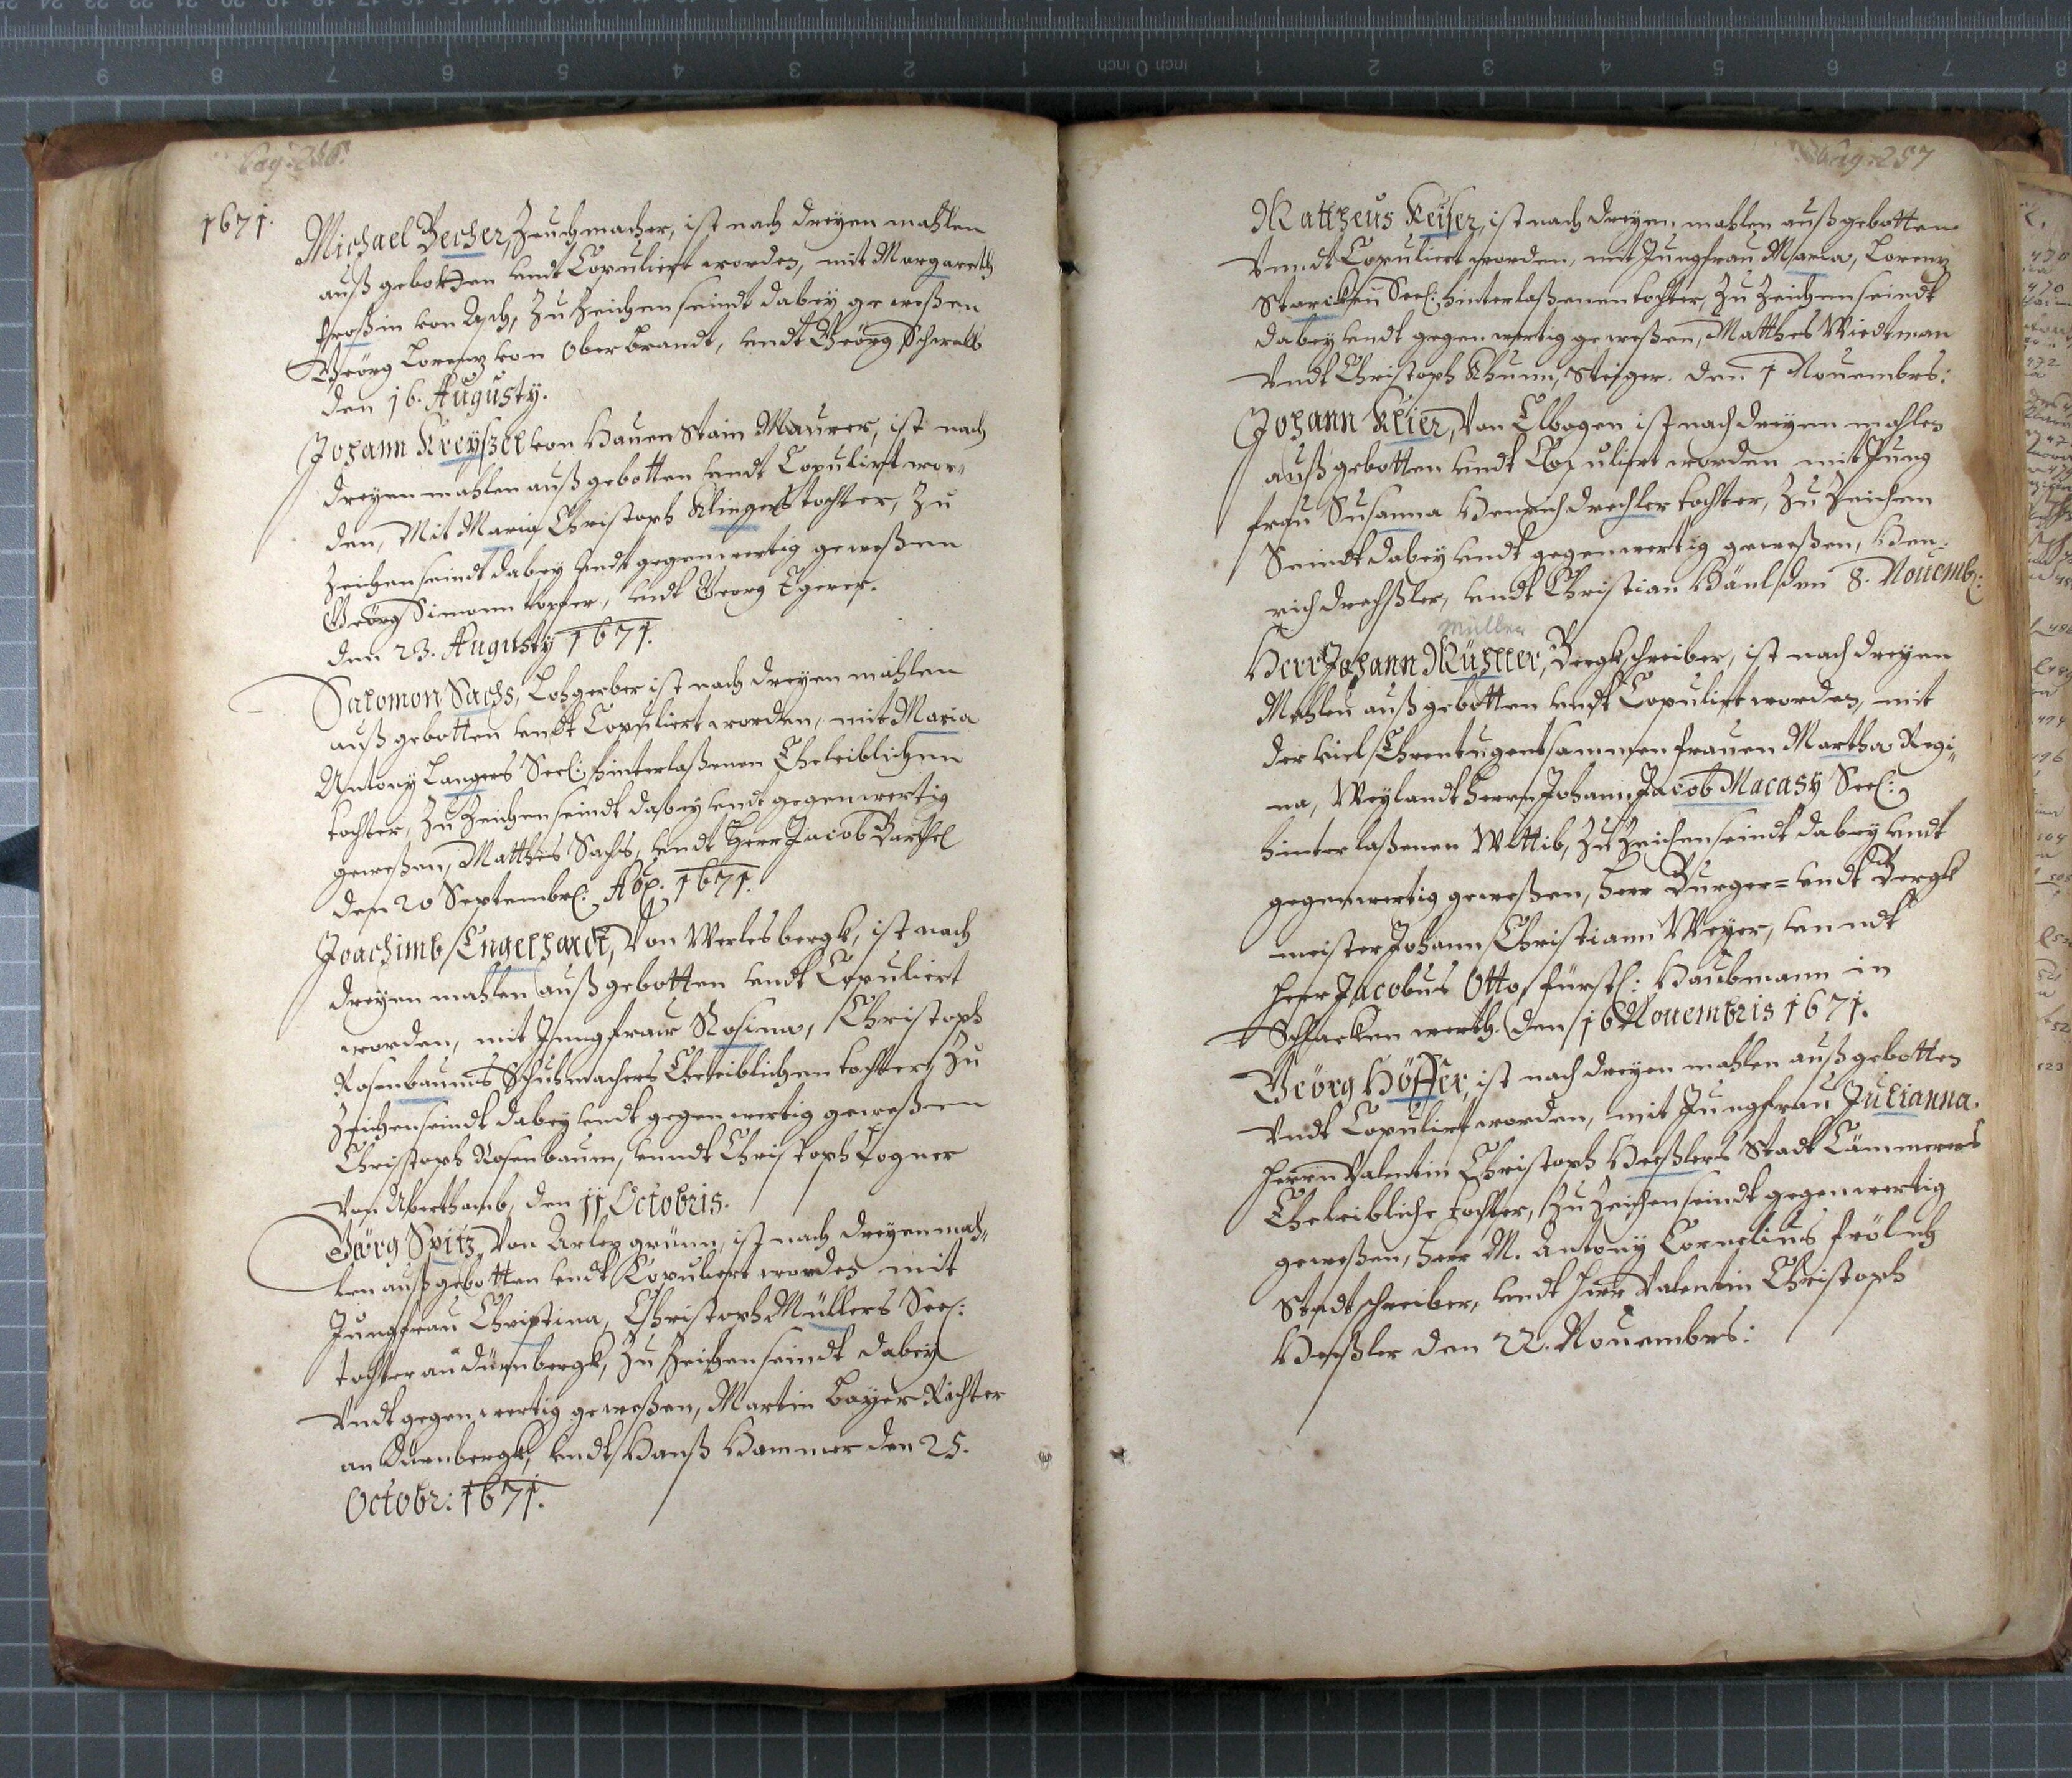 Pag: 256.
1671.
Michael Becher, Zeuchmacher, ist nach dreyen mahlen
auß gebotten undt Copuliert worden, mit Margareth
von Asch, Zu Zeichen seindt dabey geweßen
Geörg Lorenz von Oberbrandt, undt Geörg Schwalb
den 16. Augusty.
Johann Kreyßel von Hauenstain Maurer, ist nach
dreyen mahlen auß gebotten undt Copulirt wor-
den, Mit Maria Christoph Klingers tochter, Zu
Zeichen seindt dabey undt gegenwertig geweßen
Geörg Simonn töpffer, undt Georg Egerer.
den 23. Augusty 1671.
Salomon Sachs, Lohgerber ist nach dreyen mahlen
auß gebotten undt Copuliert worden, mit Maria
Antony Langers Seel: hinterlaßenen Eheleiblichen
tochter, Zu Zeichen seindt dabey undt gegenwertig
geweßen, Matthes Sachs, undt Herr Jacob Barthel
den 20 Septembr: 1671.
Joachimb Engelhardt, Von Werlesbergk, ist nach
dreyen mahlen auß gebotten undt Copuliert
worden, mit Jungfraw Rosina, Christoph
Rosenbaums Schuhmachers Eheleiblichen tochter, Zu
Zeichen seindt dabey undt gegenwertig geweßen
Christoph Rosenbaum, unndt Christoph Pogner
Von Aberthamb, den 11 Octobris.
Geörg Spitz, Von Arlezgrünn, ist nach dreyen mah-
len auß gebotten undt Copuliert worden mit
Jungfrau Christina, Christoph Müllers Seel:
tochter an dürnbergk, Zu Zeichen seindt dabey
Undt gegenwertig geweßen, Martin Bayer Richter
an Dürnbergk, undt Hanß Hammer den 25.
Octobr: 1671.
Pag: 257
Mattheus Keiser, ist nach dreyen mahlen auß gebotten
Unndt Copuliert worden, mit Jungfrau Maria, Lorenz
Starcken Seel: hinterlaßenen tochter, Zu Zeichen seindt
dabey undt gegenwertig geweßen, Matthes Wiedtman
Undt Christoph Khunn, Steiger. den 1 Nouembrs:
Johann Klier, Von Elbogen ist nach dreyen mahlen
auß gebotten undt Copulirt worden mit Jung
frau Susanna Henrich drechsler tochter, Zu Zeichen
Seindt dabey undt gegenwertig geweßen, Hen-
rich drechßler, undt Christian Hänl den 8. Nouemb:
Müller
Herr Johann Mühller, Bergkschreiber, ist nach dreyen
Mahlen auß gebotten undt Copulirt worden, mit
der Viel Ehrentugentsammen frauen Martha Regi-
na, Weylandt Herrn Johann Jacob Macasy Seel:
hinterlaßenen Wittib, Zu Zeichen seindt dabey undt
gegenwertig geweßen, Herr Burger= undt Bergk
meister Johann Christiann Meyer, unndt
Herr Jacobus Otto, fürstl: Haubmann in
Schlackenwerth. den 16 Nouembris 1671.
Geörg Höffer, ist nach dreyen mahlen auß gebotten
Undt Copulirt worden, mit Jungfrau Julianna.
Herrn Valentin Christoph Heßlers Stadt Cämmerers
Eheleibliche tochter, Zu Zeichen seindt gegenwertig
geweßen, Herr M. Antony Cornelius frölich
Stadtschreiber, undt Herr Valentin Christoph
Heßler den 22. Nouembrs: